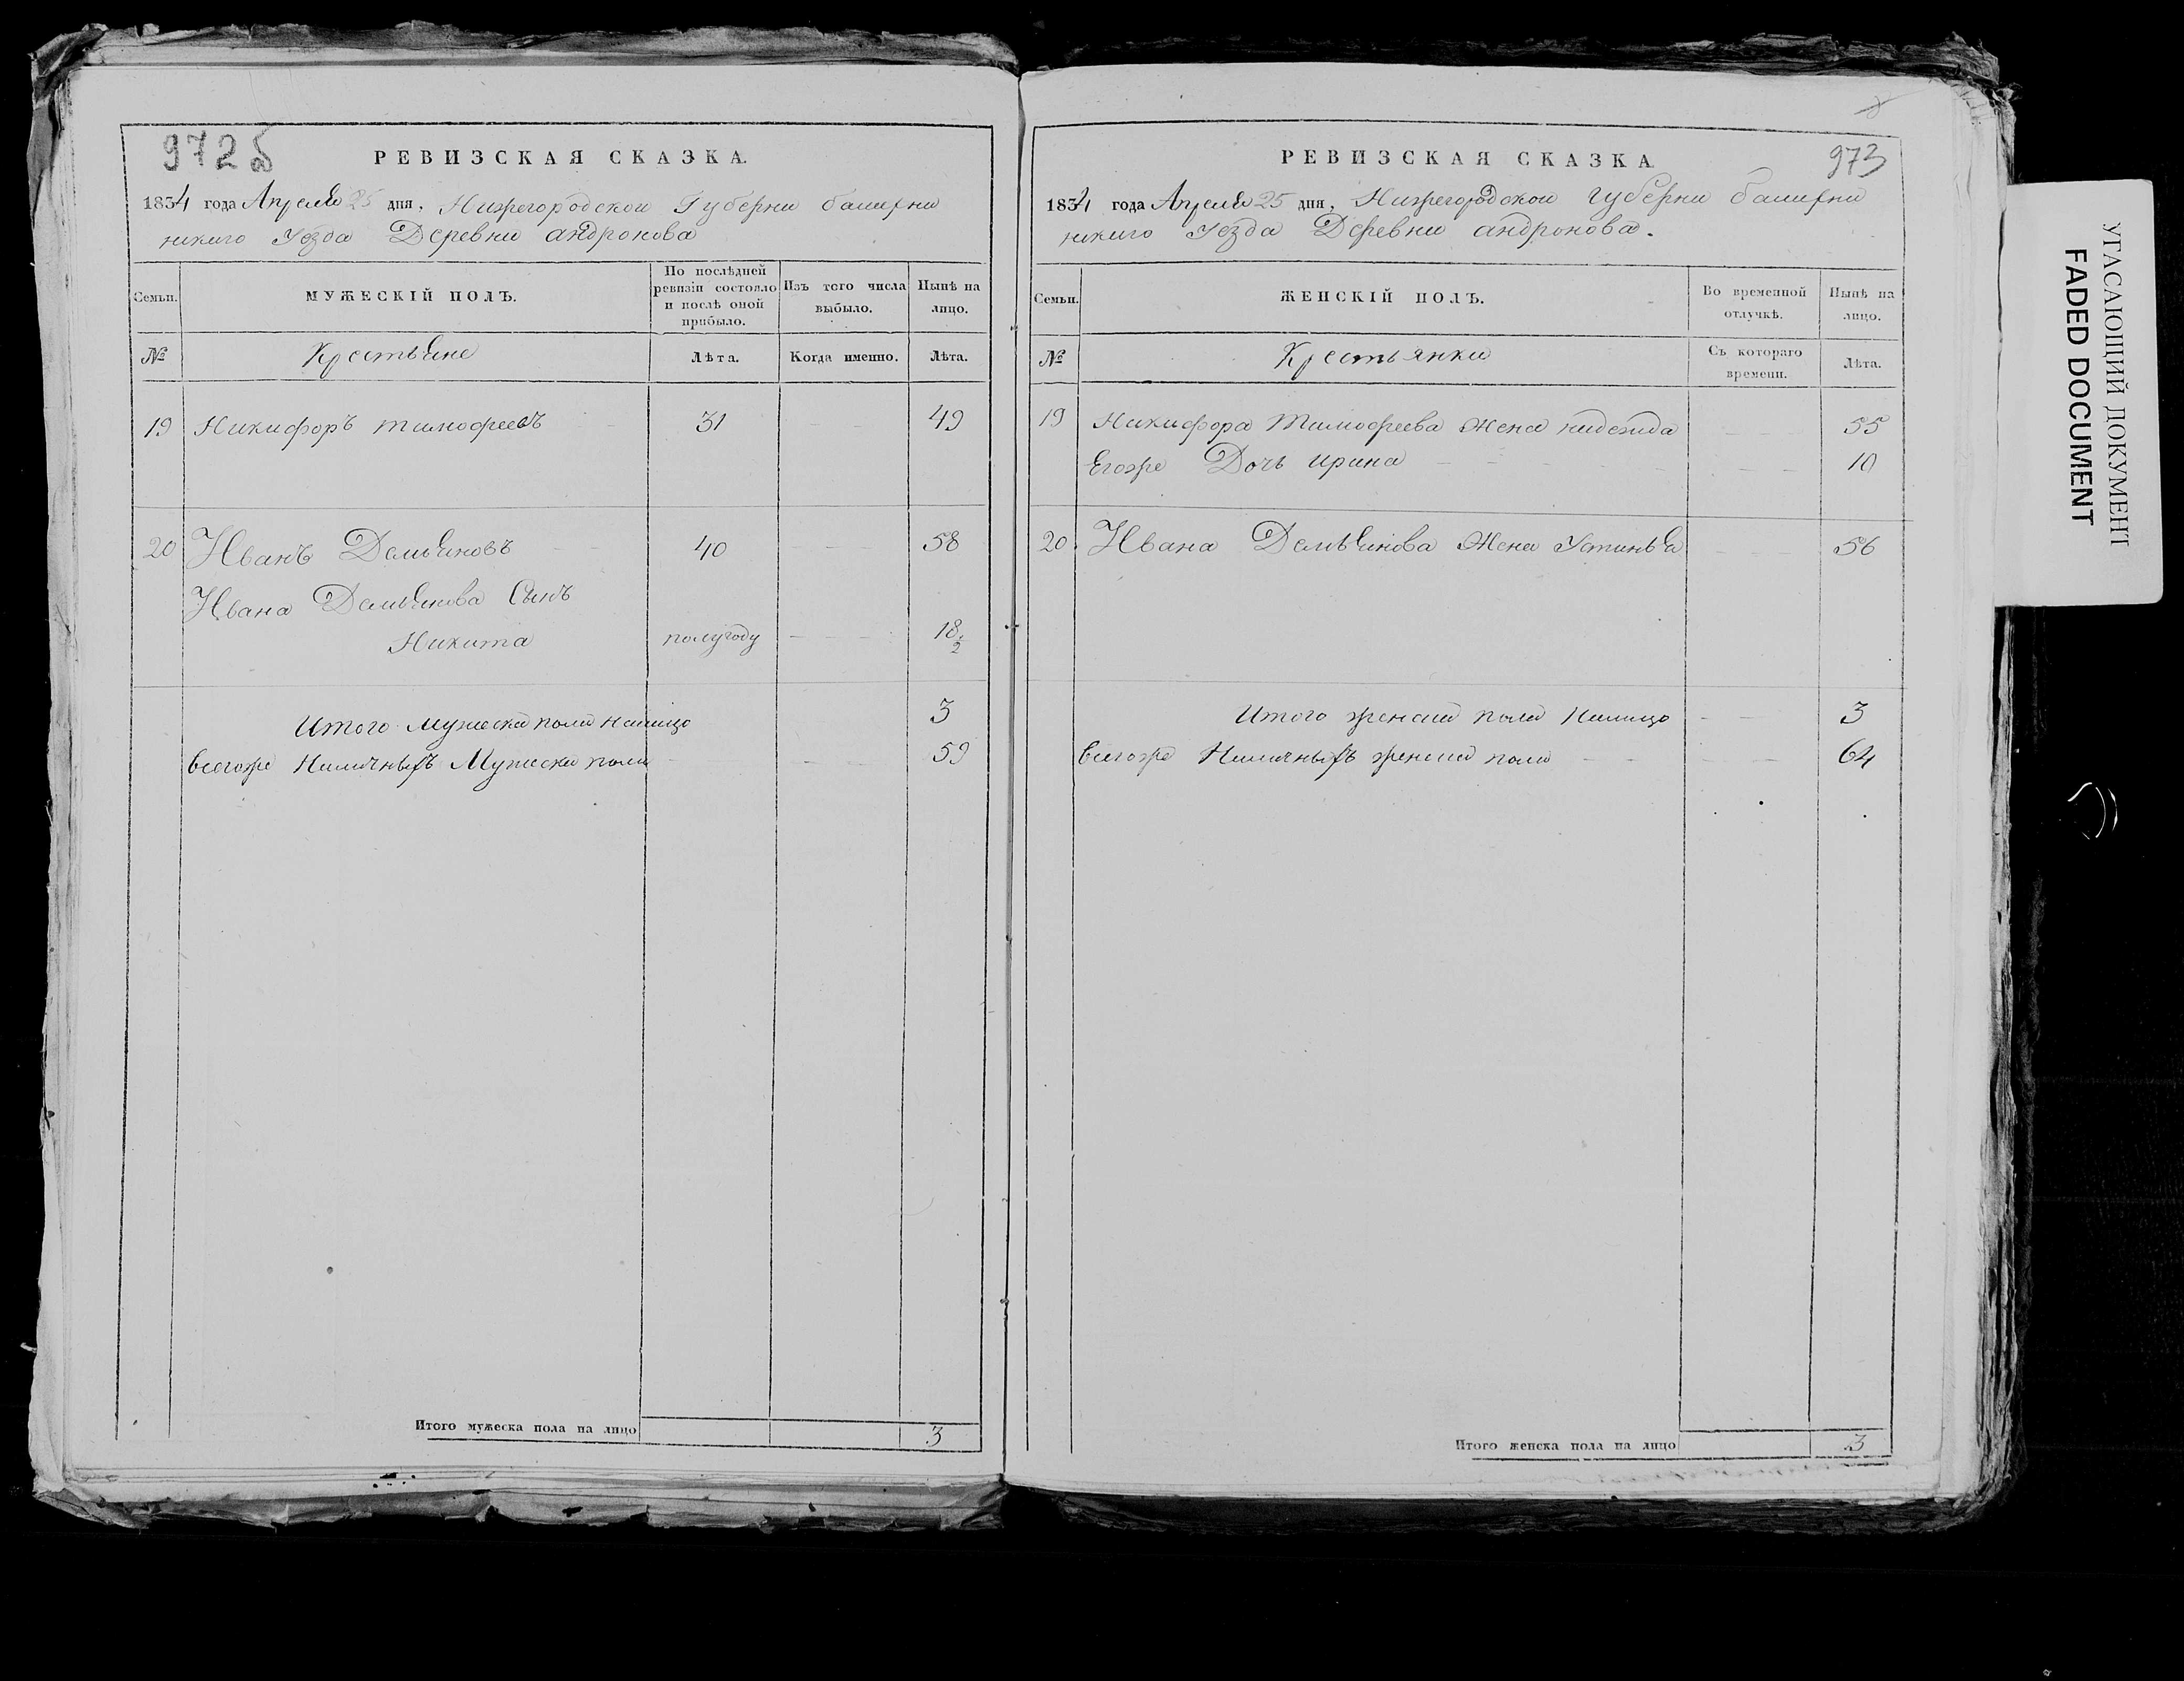 972б
РЕВИЗСКАЯ СКАЗКА.
1834 года Апреля 25 дня, Нижегородской Губерни балахни
нскаго уезда Деревни андронова
Семьи. МУЖЕСКІЙ ПОЛЪ. По послѣдней ревизіи состояло и послѣ оной прибыло. Изъ того числа выбыло. Нынѣ на лицо.
№ Крестьяне Лѣта. Когда именно. Лѣта.
19 Никифоръ тимофеевъ 31 49
20 Иванъ Демьяновъ 40 58
Ивана Демьянова Сынъ
Никита полугоду 18 1/2
Итого мужеска пола налицо 3
всегоже Наличныхъ Мужеска пола 59
Итого мужеска пола на лицо 3
973
РЕВИЗСКАЯ СКАЗКА
1834 года Апреля 25 дня, Нижегородской губерни балахни
нскаго уезда Деревни андронова.
Семьи. ЖЕНСКІЙ ПОЛЪ. Во временной отлучкѣ. Нынѣ на лицо.
№ Крестьянки Съ котораго времени. Лѣта.
19 Никифора Тимофеева Жена надежда 55
Егоже Дочь ирина 10
20. Ивана Демьянова Жена Устинья 56
Итого женска пола Налицо 3
всегоже Наличныхъ женска пола 64
Итого женска пола на лицо 3
УГАСАЮЩИЙ ДОКУМЕНТ
FADED DOCUMENT